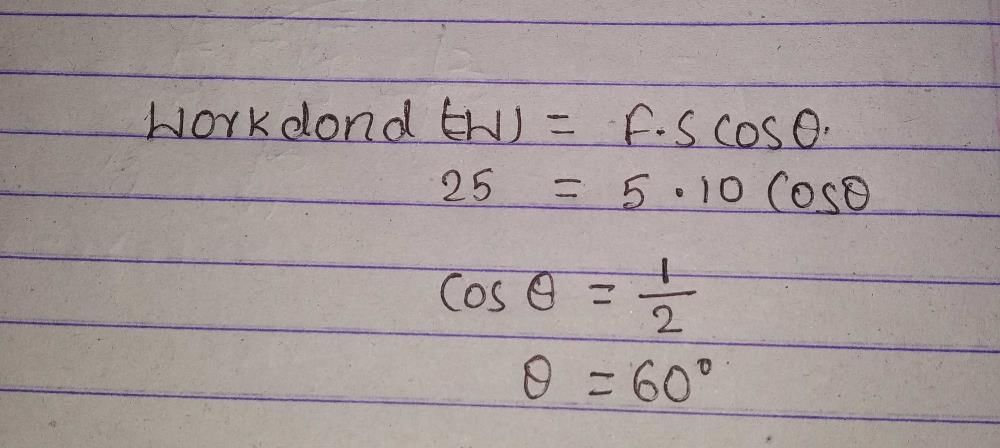 Workdond (W) = F.S cosθ.
25 = 5 . 10 Cosθ
Cos θ = 1/2
θ = 60°